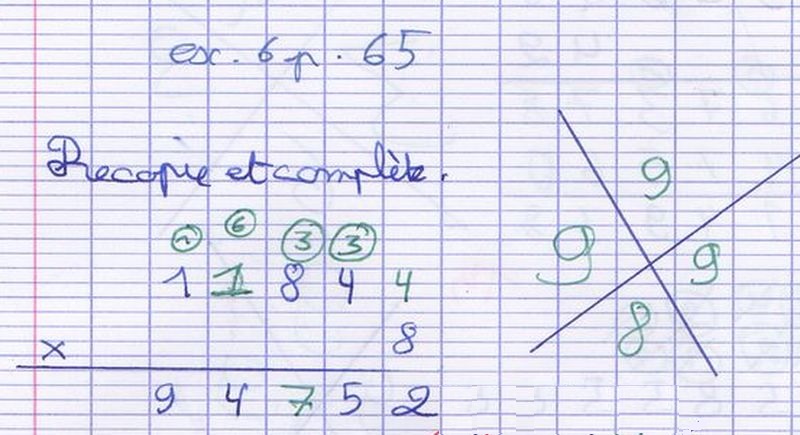 ex. 6 p. 65
Recopie et complète.
6 3 3
1 1 8 4 4
x 8
9 4 7 5 2
9
9 9
8